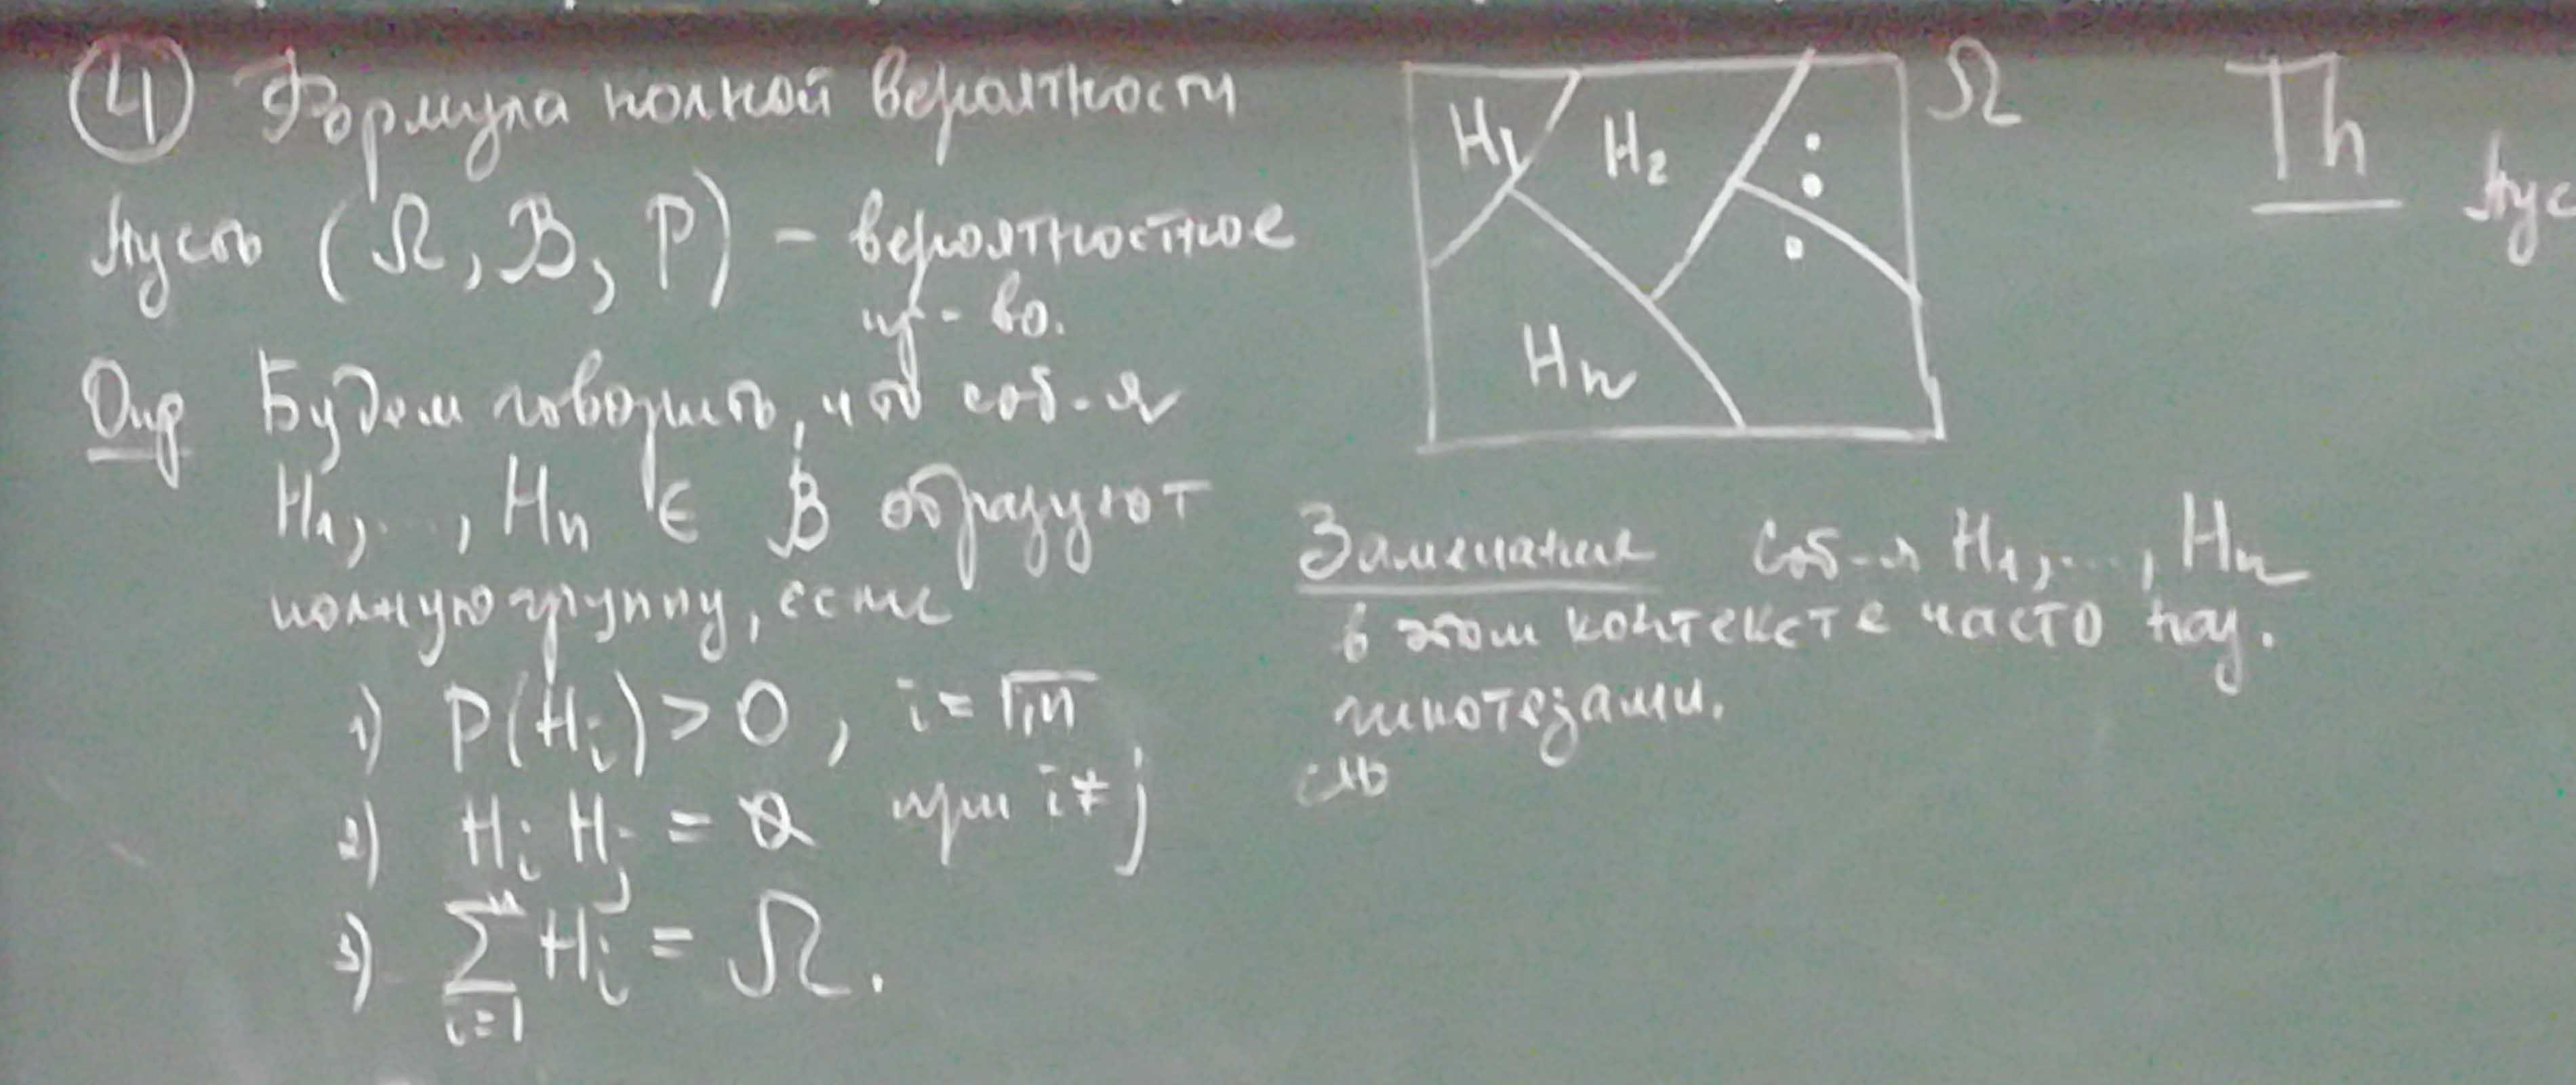 ④ Формула полной вероятности
Пусть (Ω, B, P) – вероятностное
пр-во.
Опр Будем говорить, что соб-я
H₁,..., Hn ∈ B образуют
полную группу, если
1) P(Hi) > 0, i = \overline{1,n}
2) Hi Hj = ∅ при i ≠ j
3) \sum_{i=1}^{n} Hi = Ω.
H₁ H₂ ⋮ Ω
Hn
Замечание Соб-я H₁,..., Hn
в этом контексте часто наз.
гипотезами.
Th
Пус